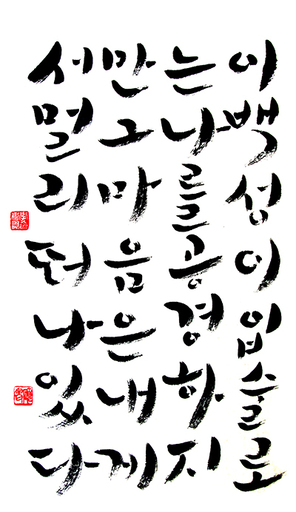 이백성이입술로
는나를공경하지
만그마음은내게
서멀리떠나있다